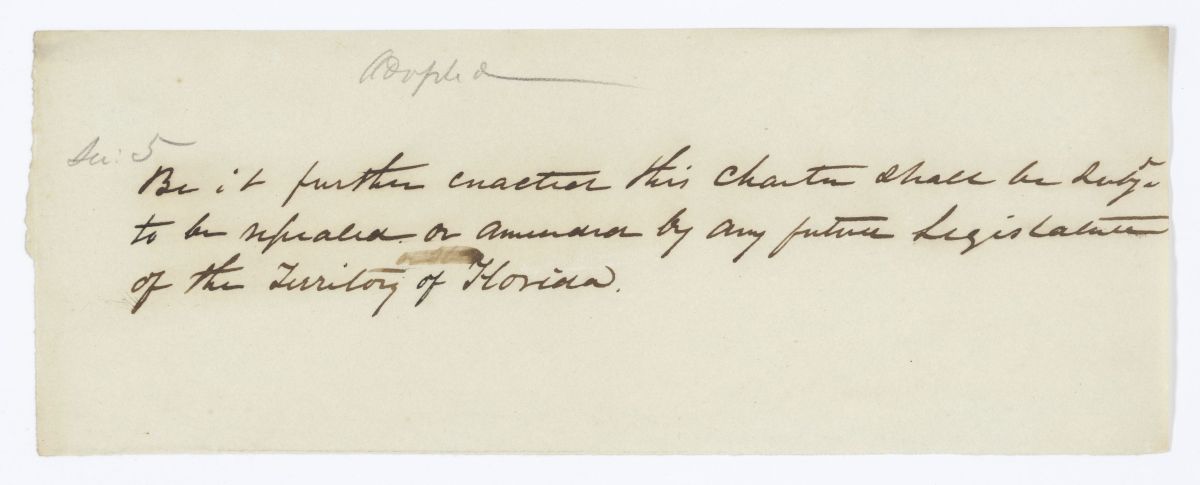 Adopted
Sec: 5
Be it further enacted this Charter shall be Subj.t
to be repealed or amended by any future Legislature
of the Territory of Florida.